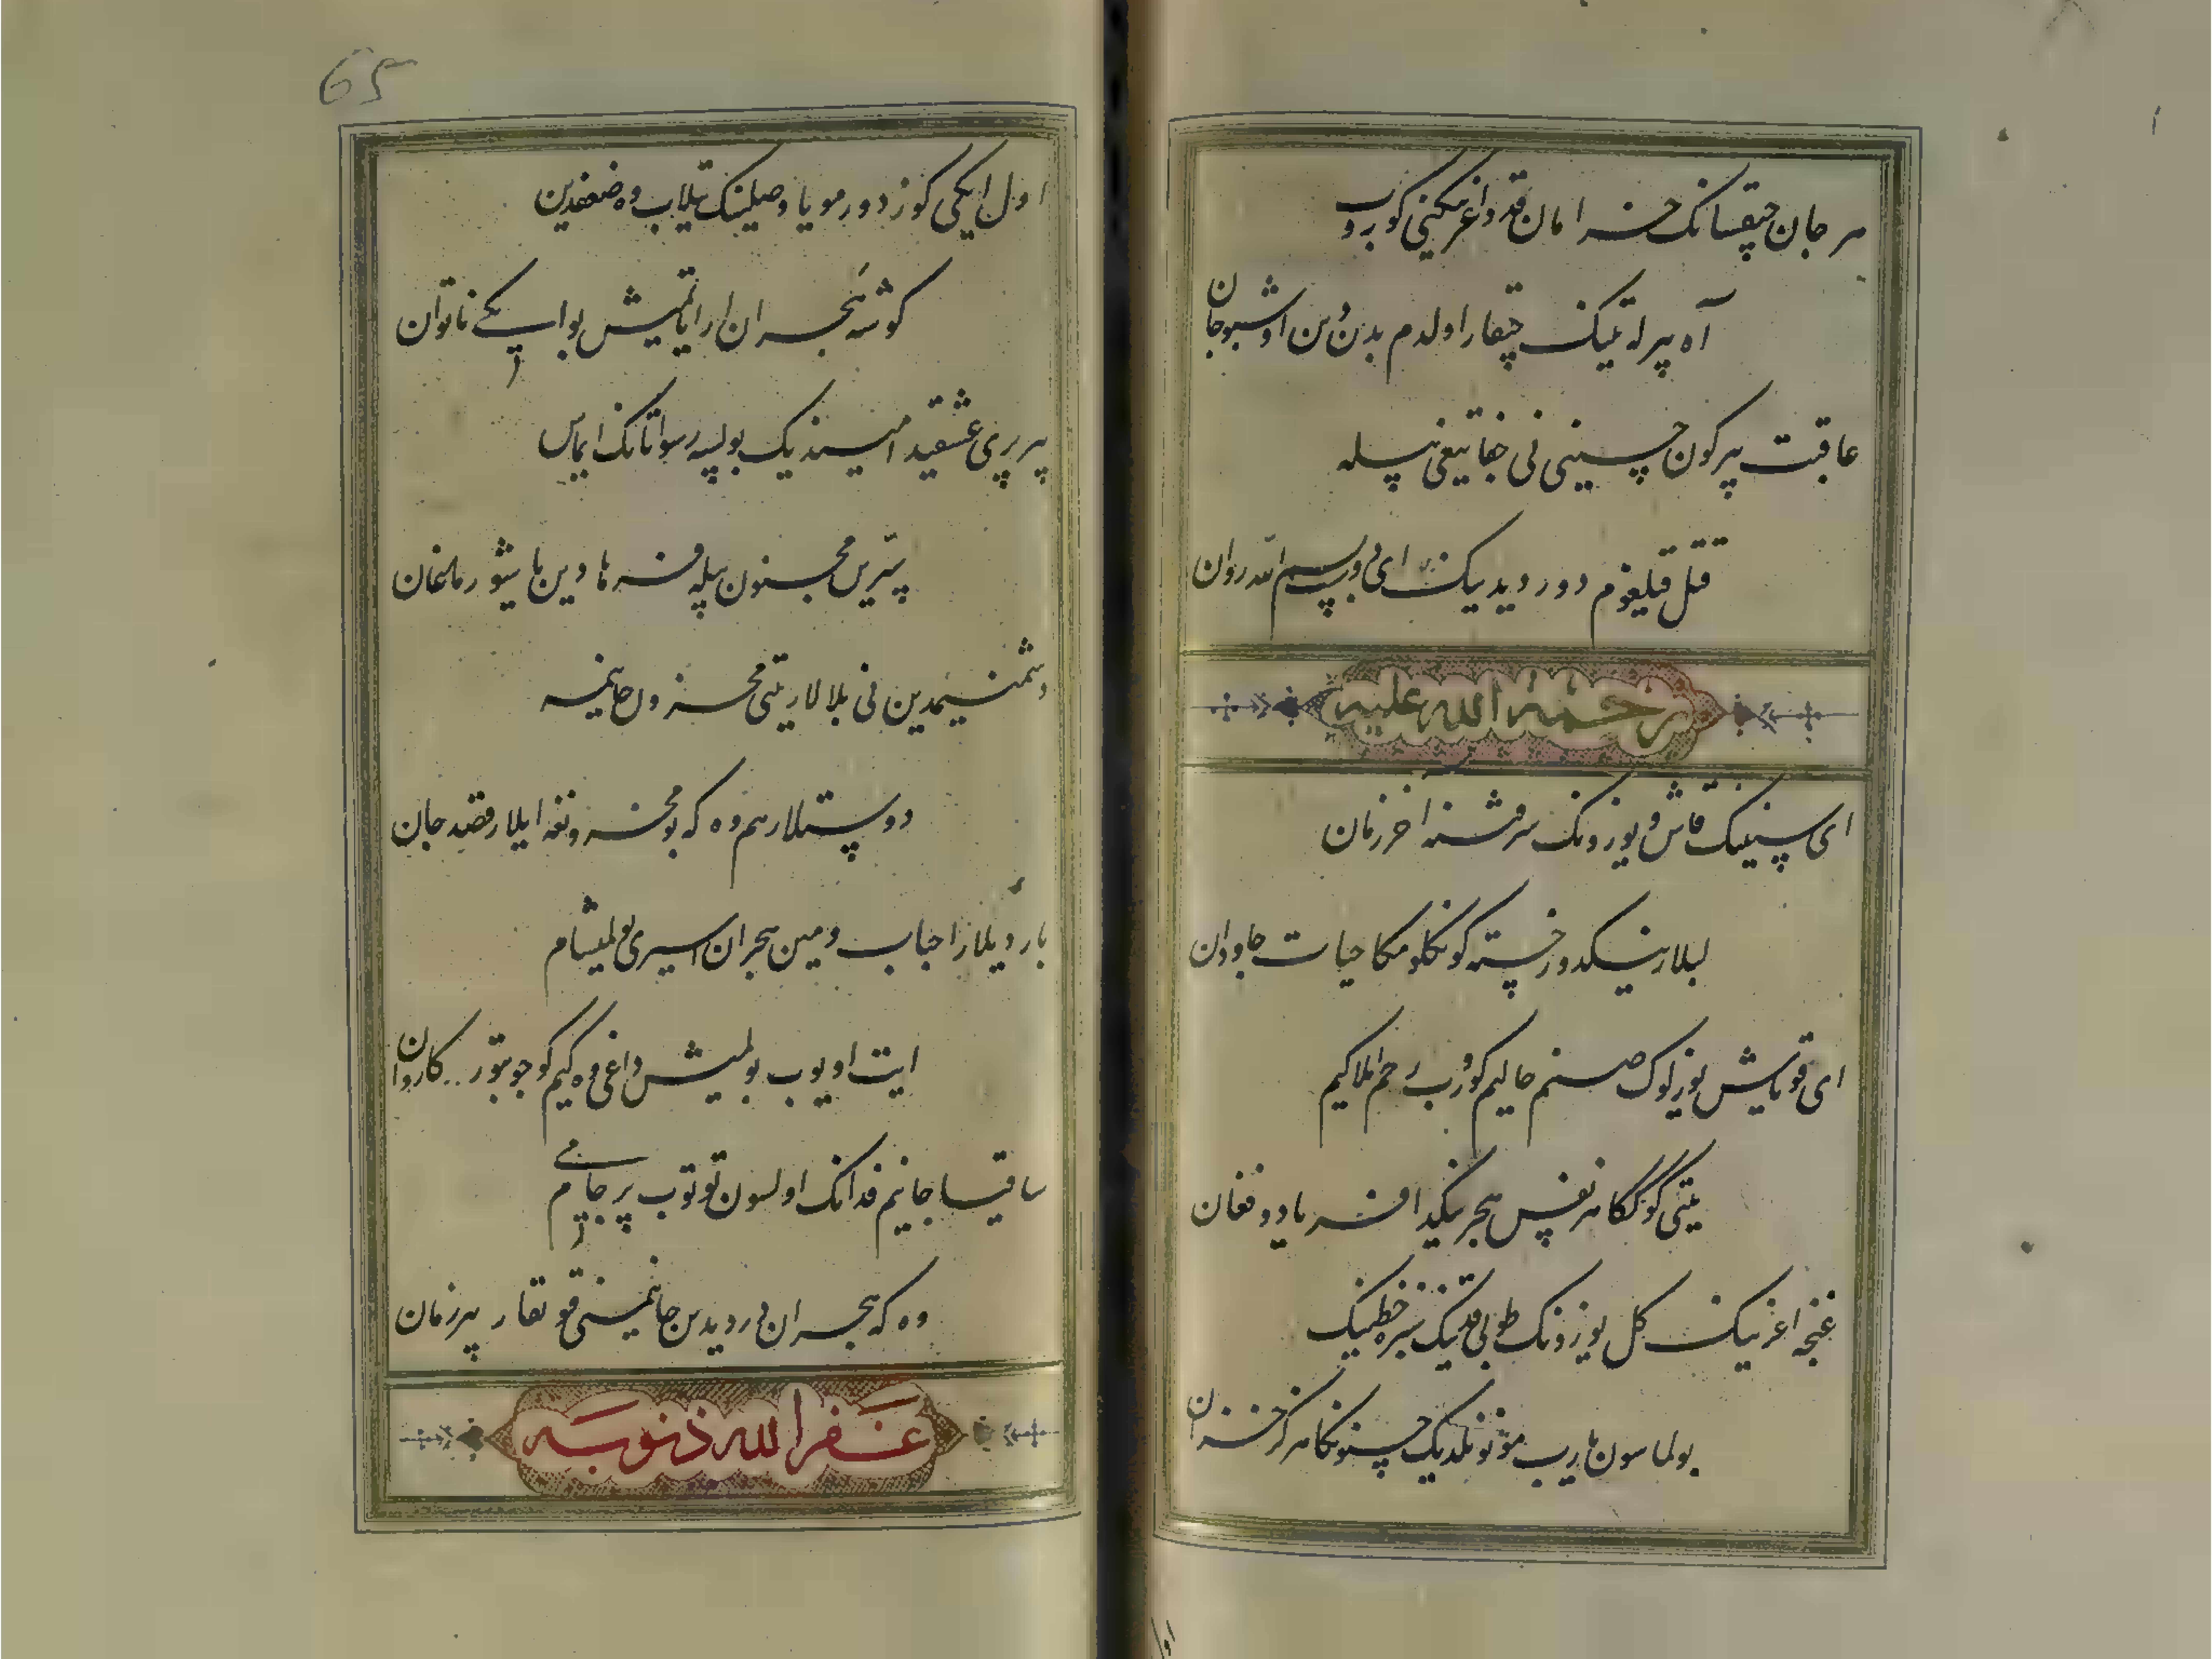 هر جان چیقسانک خرامان قد و اغزینکنی کوروب
آه بیرله تیک چیقار اولدم بدن دین اوشبو جان
عاقبت بیر کون حسینی نی جفا تیغی بیله
قتل قیلغوم دور دیدینک ای دوست بسم الله روان
رحمة الله علیه
ای سنینک قاش و یوزونک سرفتنه آخر زمان
لبلارینکدور خسته کونکلومکا حیات جاودان
ای قویاش یوزلوک صنم حالیم کوروب رحم ایلاکیم
یتی کوککا هر نفس هجرینکدا فریاد و فغان
غنچه اغزینک کل یوزونک طوبی قدینک سبزه خطینک
بولماسون یارب موندیک حسنونکا هرکز خزان
اول ایکی کوز دورمو یا وصلینک تیلاب وه ضعفدین
کوشه هجران ارا یاتمیش بو ایکی ناتوان
بیر پری عشقیدا میندیک بولسه رسوا تانک ایماس
بیتریس مجنون بیله فرهادین یا شور مانغان
دشمنیمدین نی بلالار یتی محزون جانیمه
دوستلار هم وه که بو محزونغه ایلار قصد جان
باردیلار احباب و مین هجران اسیری بولمیشام
ایت اویوب بولمیش داغی وه کیم کوچوبتور کاروان
ساقیا جانیم فدانک اولسون توتوب بیر جام می
وه که هجران دردیدین جانیمنی قوتقار بیر زمان
غفر الله ذنوبه
65